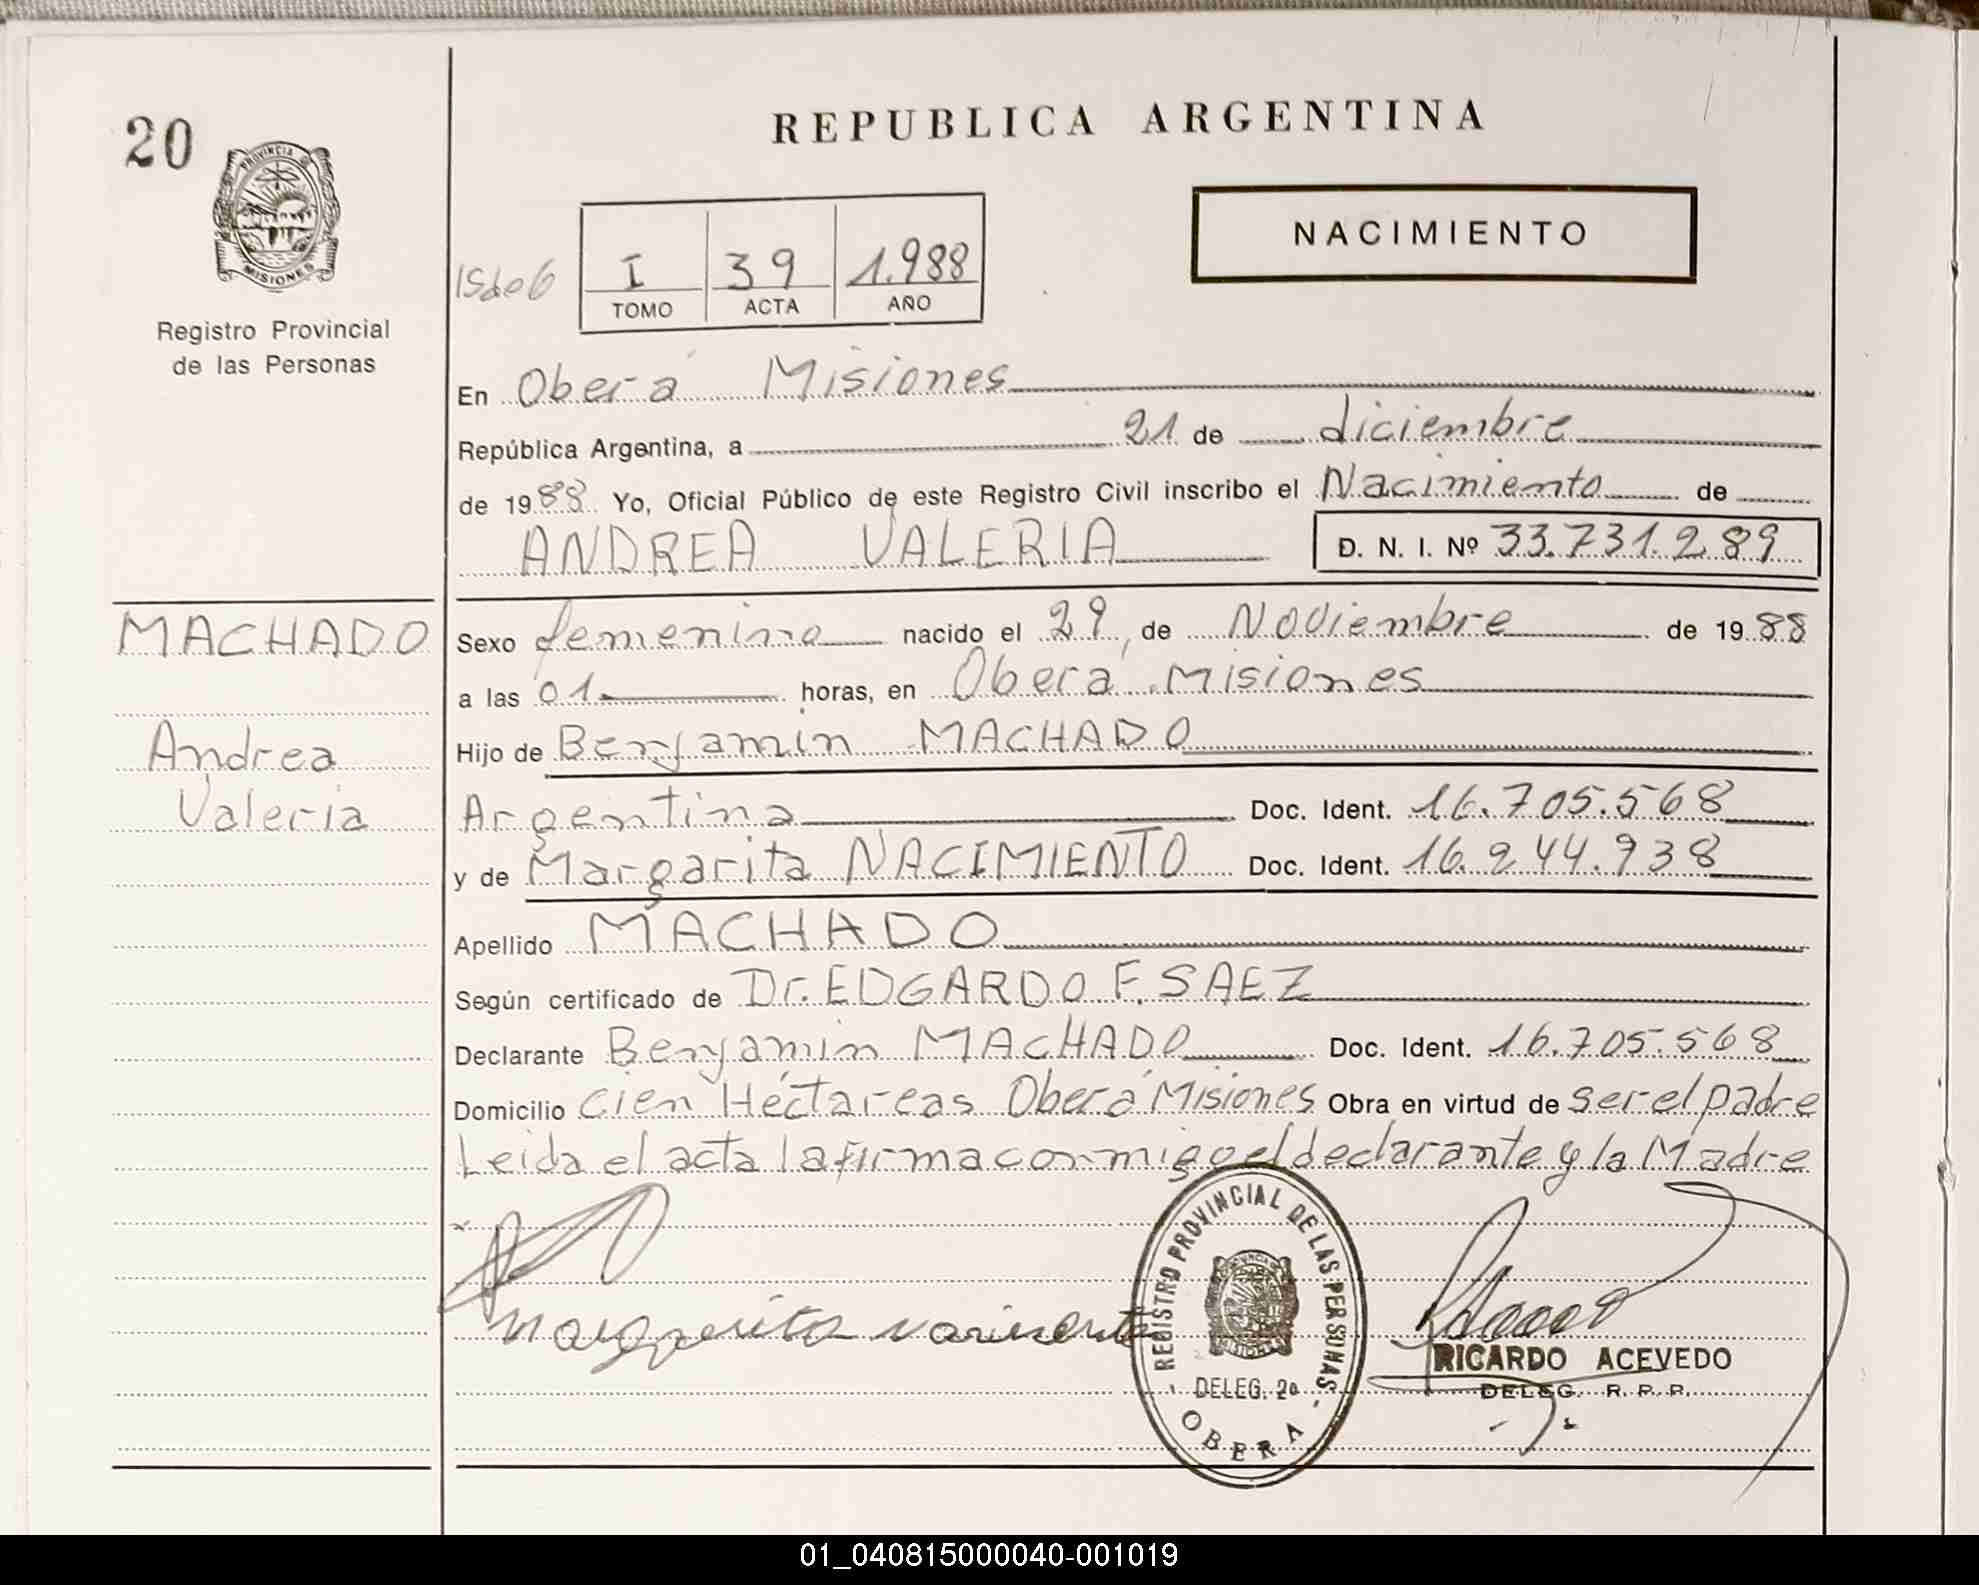 20
PROVINCIA DE
MISIONES
Registro Provincial
de las Personas
REPUBLICA ARGENTINA
NACIMIENTO
I 39 1.988
TOMO ACTA AÑO
En Oberá Misiones
República Argentina, a 21 de diciembre
de 1988 Yo, Oficial Público de este Registro Civil inscribo el Nacimiento de
ANDREA VALERIA D. N. I. Nº 33.731.289
MACHADO
Andrea
Valeria
Sexo femenino nacido el 29 de Noviembre de 1988
a las 01 horas, en Oberá Misiones
Hijo de Benjamin MACHADO
Argentina Doc. Ident. 16.705.568
y de Margarita NACIMIENTO Doc. Ident. 16.244.938
Apellido MACHADO
Según certificado de Dr. EDGARDO F. SAEZ
Declarante Benjamin MACHADO Doc. Ident. 16.705.568
Domicilio Cien Héctareas Oberá Misiones Obra en virtud de ser el padre
Leida el acta la firma conmigo el declarante y la Madre
Margarita
REGISTRO PROVINCIAL DE LAS PERSONAS
MISIONES
DELEG. 2a
OBERA
RICARDO ACEVEDO
DELEG. R. P. P.
01_040815000040-001019